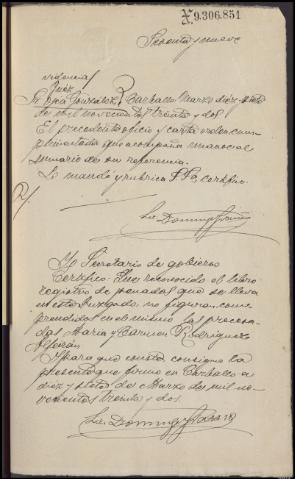 N. 9.306.851
Sesenta y nueve
Juez
Sr. Jesus Gonzalez Carballo Marzo diez y siete
de mil novecientos treinta y dos
El precedente oficio y carta orden cum
plimentada que acompaña unanse al
sumario de su referencia.
Lo mandó y rubrica S.Sª. certifico.
Lic. Domingo
Yo Secretario de gobierno
Certifico: Que reconocido el libro
registro de penados que se lleva
en este Juzgado no figuran com
prendidas en el mismo las procesa-
das Maria y Carmen Rodriguez
Y para que conste consigno la
presente que firmo en Carballo a
diez y siete de Marzo de mil no-
vecientos treinta y dos
Lic. Domingo